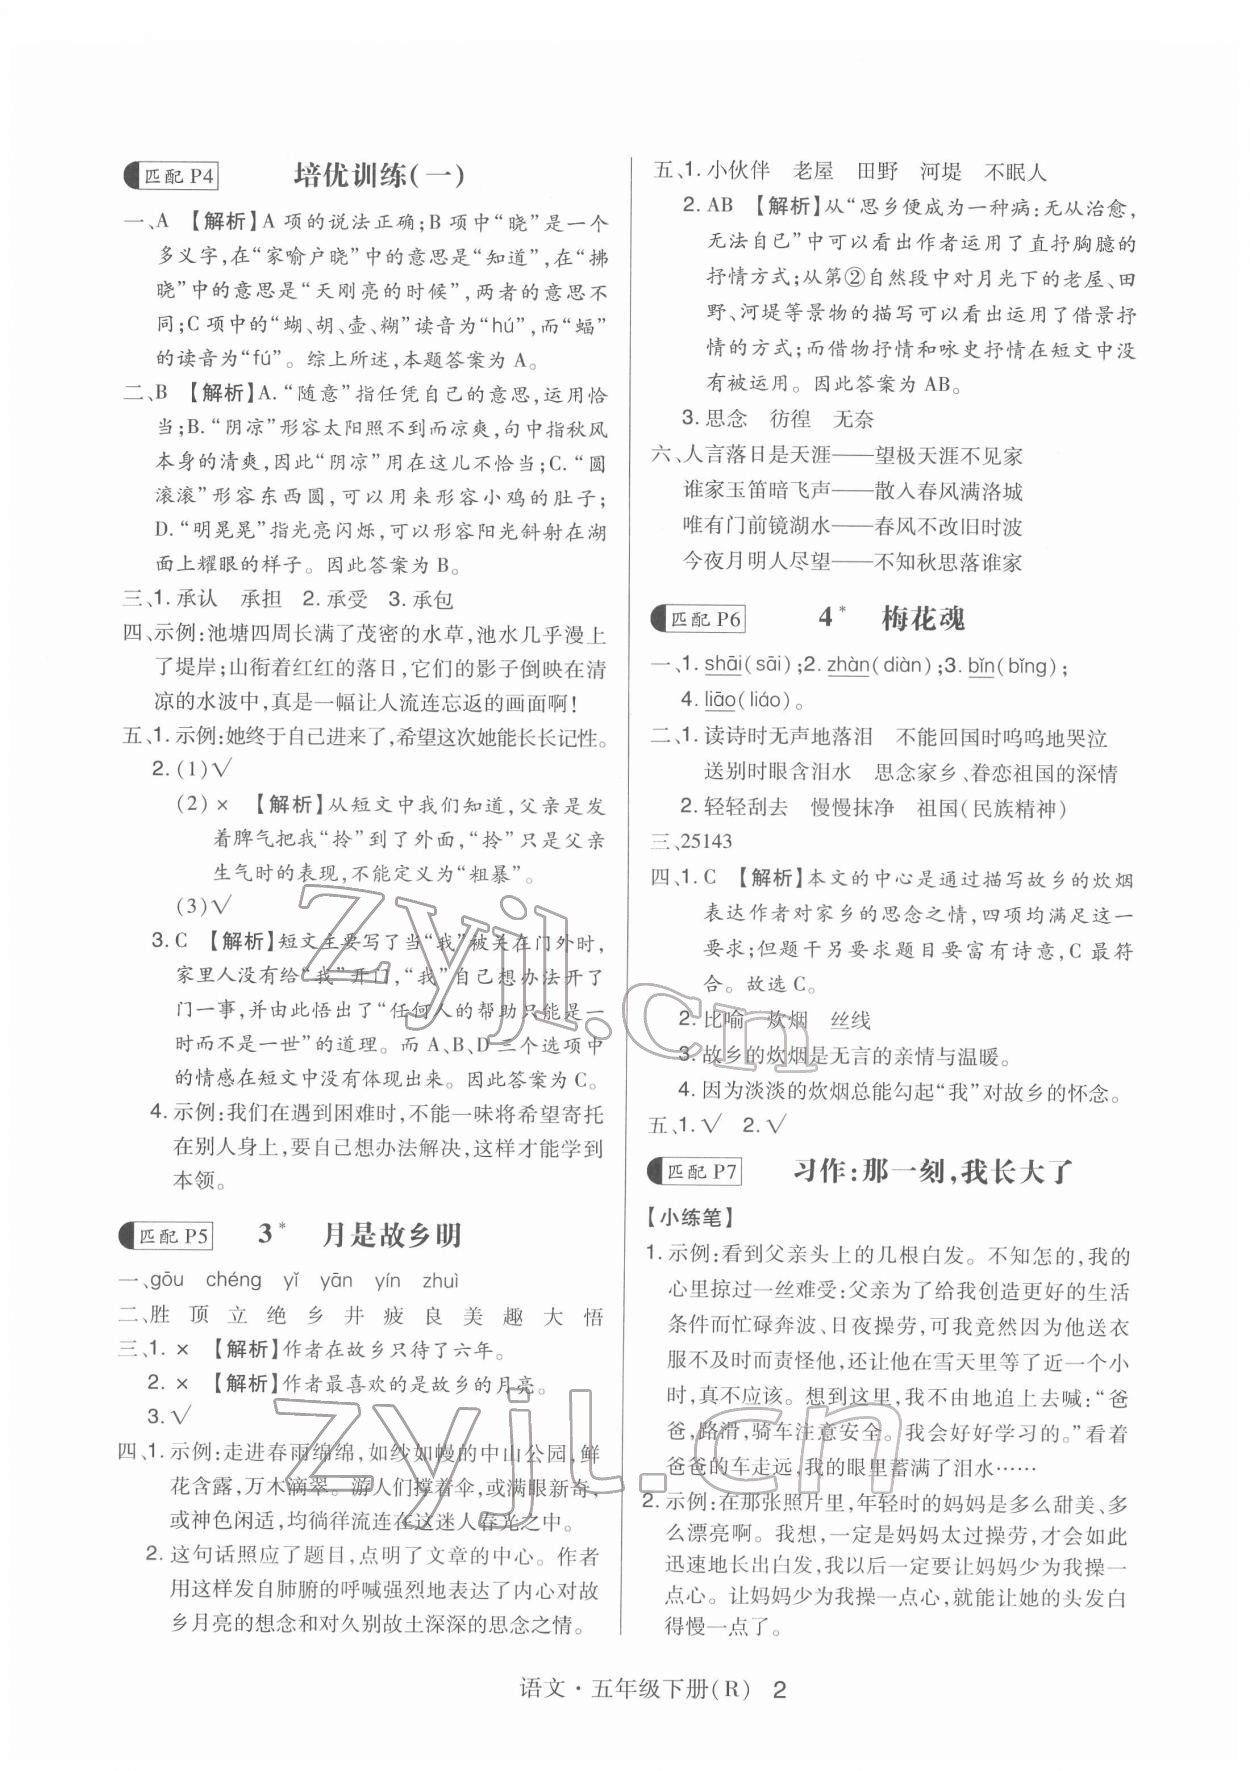 匹配 P4 培优训练(一)
一、A 【解析】A 项的说法正确;B 项中“晓”是一个
多义字,在“家喻户晓”中的意思是“知道”,在“拂
晓”中的意思是“天刚亮的时候”,两者的意思不
同;C 项中的“蝴、胡、壶、糊”读音为“hú”,而“蝠”
的读音为“fú”。综上所述,本题答案为 A。
二、B 【解析】A.“随意”指任凭自己的意思,运用恰
当;B.“阴凉”形容太阳照不到而凉爽,句中指秋风
本身的清爽,因此“阴凉”用在这儿不恰当;C.“圆
滚滚”形容东西圆,可以用来形容小鸡的肚子;
D.“明晃晃”指光亮闪烁,可以形容阳光斜射在湖
面上耀眼的样子。因此答案为 B。
三、1. 承认 承担 2. 承受 3. 承包
四、示例:池塘四周长满了茂密的水草,池水几乎漫上
了堤岸;山衔着红红的落日,它们的影子倒映在清
凉的水波中,真是一幅让人流连忘返的画面啊!
五、1. 示例:她终于自己进来了,希望这次她能长长记性。
2. (1)√
(2) × 【解析】从短文中我们知道,父亲是发
着脾气把我“拎”到了外面,“拎”只是父亲
生气时的表现,不能定义为“粗暴”。
(3)√
3. C 【解析】短文主要写了当“我”被关在门外时,
家里人没有给“我”开门,“我”自己想办法开了
门一事,并由此悟出了“任何人的帮助只能是一
时而不是一世”的道理。而 A、B、D 三个选项中
的情感在短文中没有体现出来。因此答案为 C。
4. 示例:我们在遇到困难时,不能一味将希望寄托
在别人身上,要自己想办法解决,这样才能学到
本领。
匹配 P5 3* 月是故乡明
一、gōu chéng yǐ yān yín zhuì
二、胜 顶 立 绝 乡 井 疲 良 美 趣 大 悟
三、1. × 【解析】作者在故乡只待了六年。
2. × 【解析】作者最喜欢的是故乡的月亮。
3. √
四、1. 示例:走进春雨绵绵,如纱如幔的中山公园,鲜
花含露,万木滴翠。游人们撑着伞,或满眼新奇,
或神色闲适,均徜徉流连在这迷人春光之中。
2. 这句话照应了题目,点明了文章的中心。作者
用这样发自肺腑的呼喊强烈地表达了内心对故
乡月亮的想念和对久别故土深深的思念之情。
五、1. 小伙伴 老屋 田野 河堤 不眠人
2. AB 【解析】从“思乡便成为一种病:无从治愈,
无法自已”中可以看出作者运用了直抒胸臆的
抒情方式;从第②自然段中对月光下的老屋、田
野、河堤等景物的描写可以看出运用了借景抒
情的方式;而借物抒情和咏史抒情在短文中没
有被运用。因此答案为 AB。
3. 思念 彷徨 无奈
六、人言落日是天涯——望极天涯不见家
谁家玉笛暗飞声——散入春风满洛城
唯有门前镜湖水——春风不改旧时波
今夜月明人尽望——不知秋思落谁家
匹配 P6 4* 梅花魂
一、1. shāi(sāi);2. zhàn(diàn);3. bīn(bīng);
4. liāo(liáo)。
二、1. 读诗时无声地落泪 不能回国时呜呜地哭泣
送别时眼含泪水 思念家乡、眷恋祖国的深情
2. 轻轻刮去 慢慢抹净 祖国(民族精神)
三、25143
四、1. C 【解析】本文的中心是通过描写故乡的炊烟
表达作者对家乡的思念之情,四项均满足这一
要求;但题干另要求题目要富有诗意,C 最符
合。故选 C。
2. 比喻 炊烟 丝线
3. 故乡的炊烟是无言的亲情与温暖。
4. 因为淡淡的炊烟总能勾起“我”对故乡的怀念。
五、1. √ 2. √
匹配 P7 习作:那一刻,我长大了
【小练笔】
1. 示例:看到父亲头上的几根白发。不知怎的,我的
心里掠过一丝难受:父亲为了给我创造更好的生活
条件而忙碌奔波、日夜操劳,可我竟然因为他送衣
服不及时而责怪他,还让他在雪天里等了近一个小
时,真不应该。想到这里,我不由地追上去喊:“爸
爸,路滑,骑车注意安全。我会好好学习的。”看着
爸爸的车走远,我的眼里蓄满了泪水……
2. 示例:在那张照片里,年轻时的妈妈是多么甜美、多
么漂亮啊。我想,一定是妈妈太过操劳,才会如此
迅速地长出白发,我以后一定要让妈妈少为我操一
点心。让妈妈少为我操一点心,就能让她的头发白
得慢一点了。
语文·五年级下册(R) 2
zyjl.cn
zyjl.cn